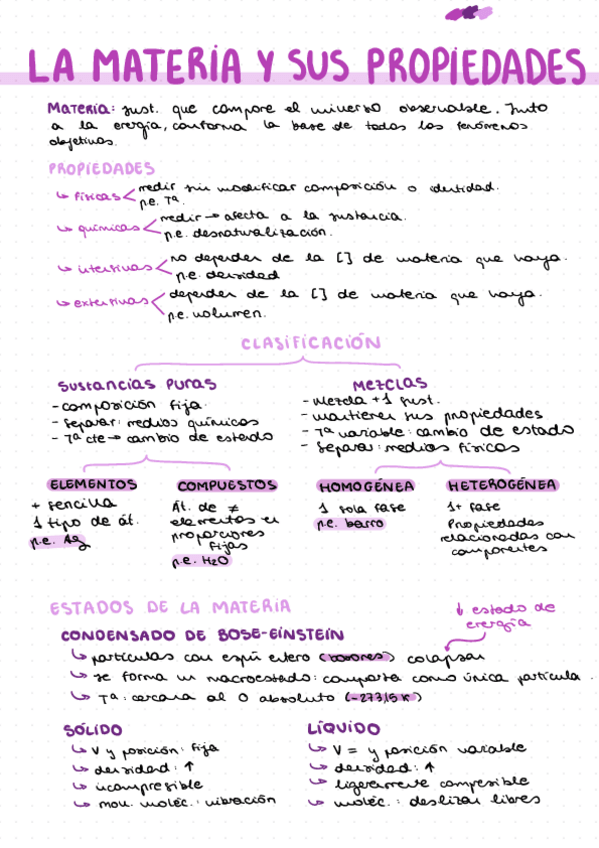 LA MATERIA Y SUS PROPIEDADES
Materia: sust. que compone el universo observable. Junto
a la energía, conforma la base de todos los fenómenos
objetivos.
PROPIEDADES
↳ físicas < medir sin modificar composición o identidad.
p.e. Tª.
↳ químicas < medir → afecta a la sustancia.
p.e. desnaturalización.
↳ intensivas < no depender de la [] de materia que haya.
p.e. densidad
↳ extensivas < depender de la [] de materia que haya.
p.e. volumen.
CLASIFICACIÓN
SUSTANCIAS PURAS
- composición fija.
- separar: medios químicos
- Tª cte → cambio de estado
MEZCLAS
- Mezcla +1 sust.
- mantienen sus propiedades
- Tª variable: cambio de estado
- Separar: medios físicos
ELEMENTOS
+ sencilla
1 tipo de át.
p.e. Ag
COMPUESTOS
Át. de ≠
elementos en
proporciones
fijas
p.e. H2O
HOMOGÉNEA
1 sola fase
p.e. barro
HETEROGÉNEA
1+ fase
Propiedades
relacionadas con
componentes
ESTADOS DE LA MATERIA
↓ estado de
energía
CONDENSADO DE BOSE-EINSTEIN
↳ partículas con espín entero (bosones) colapsan
↳ se forma un macroestado: comporta como única partícula.
↳ Tª: cercana al 0 absoluto (-273,15 K)
SÓLIDO
↳ V y posición: fija
↳ densidad: ↑
↳ incompresible
↳ mov. moléc.: vibración
LÍQUIDO
↳ V = y posición variable
↳ densidad: ↑
↳ ligeramente compresible
↳ moléc.: deslizan libres